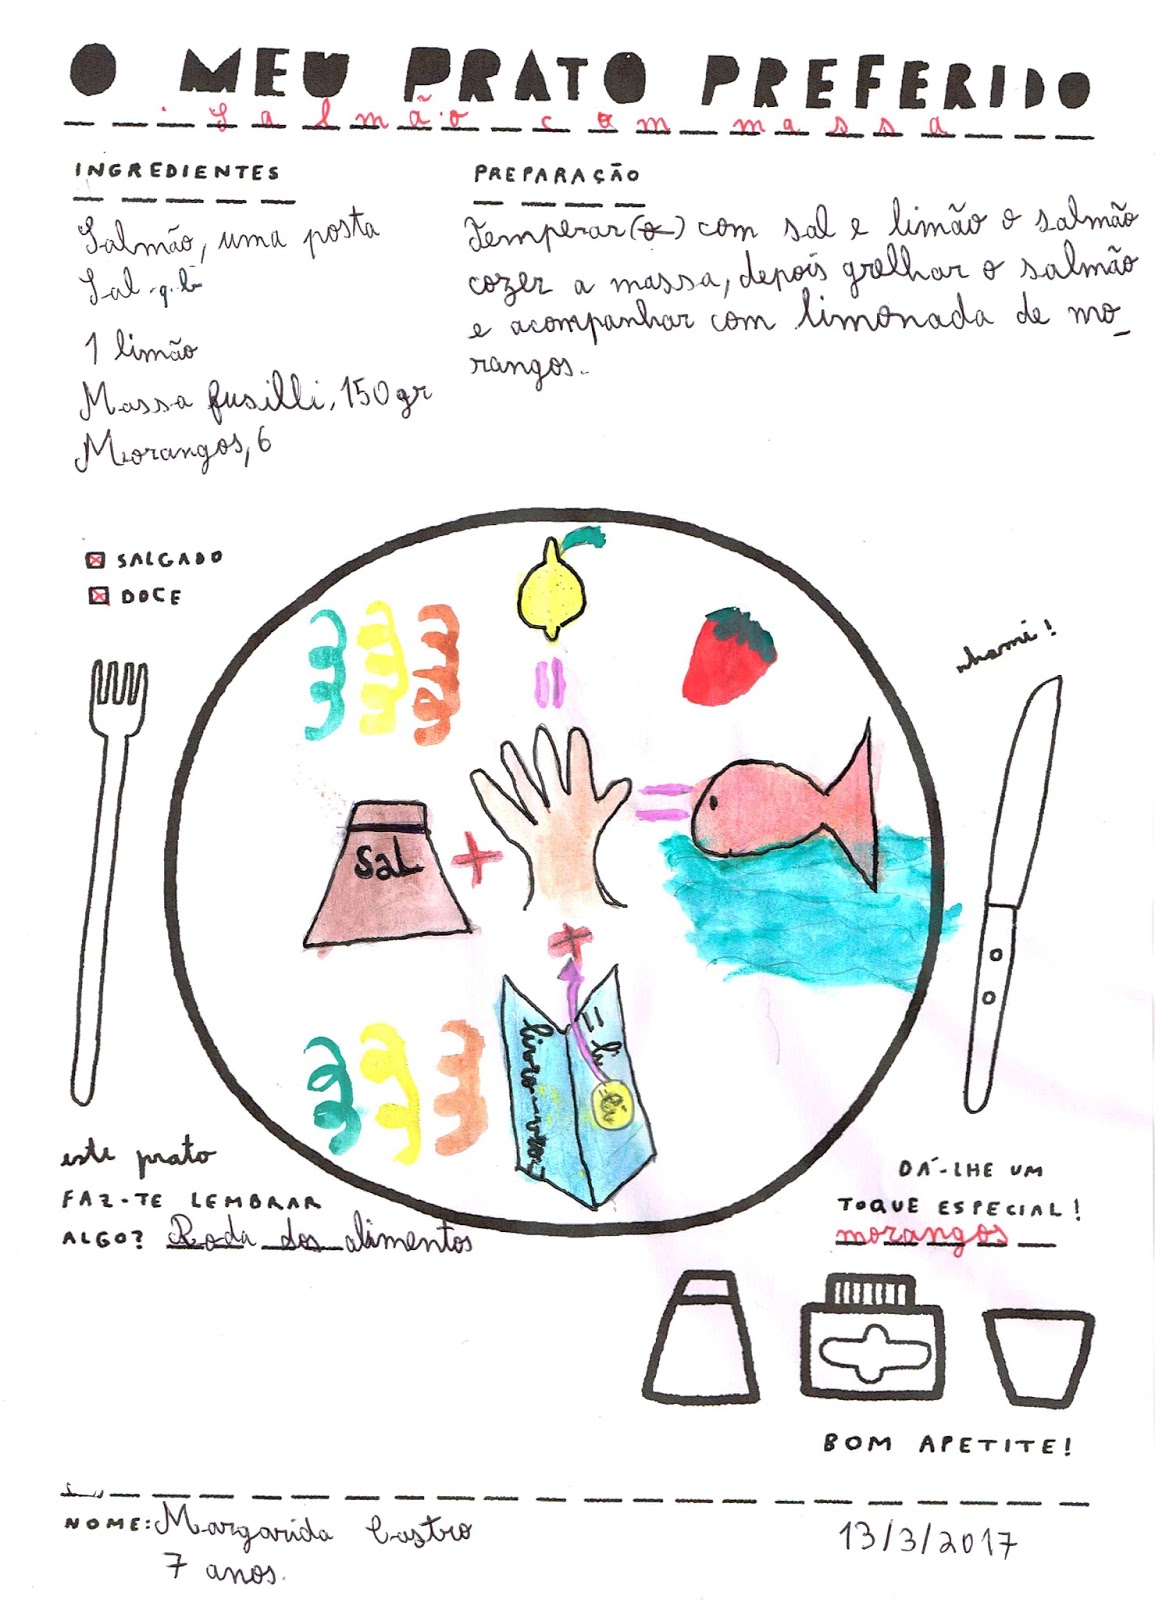 O MEU PRATO PREFERIDO
Salmão com massa
INGREDIENTES
Salmão, uma posta
Sal q.b
1 limão
Massa fusilli, 150 gr
Morangos, 6
PREPARAÇÃO
Temperar (o) com sal e limão o salmão
cozer a massa, depois grelhar o salmão
e acompanhar com limonada de mo_
rangos.
SALGADO
DOCE
nhami!
sal
este prato
FAZ-TE LEMBRAR
ALGO? Roda dos alimentos
DÁ-LHE UM
TOQUE ESPECIAL!
morangos
BOM APETITE!
NOME: Margarida Castro
7 anos.
13/3/2017